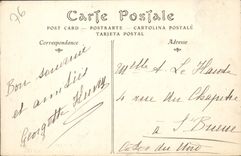 26
Carte Postale
POST CARD — POSTKARTE — CARTOLINA POSTALE
TARJETA POSTAL
Correspondance
Adresse
Bon souvenir
et amitiés
Georgette
Mlle
4 rue du Chapitre
à St Brieuc
Côtes du Nord